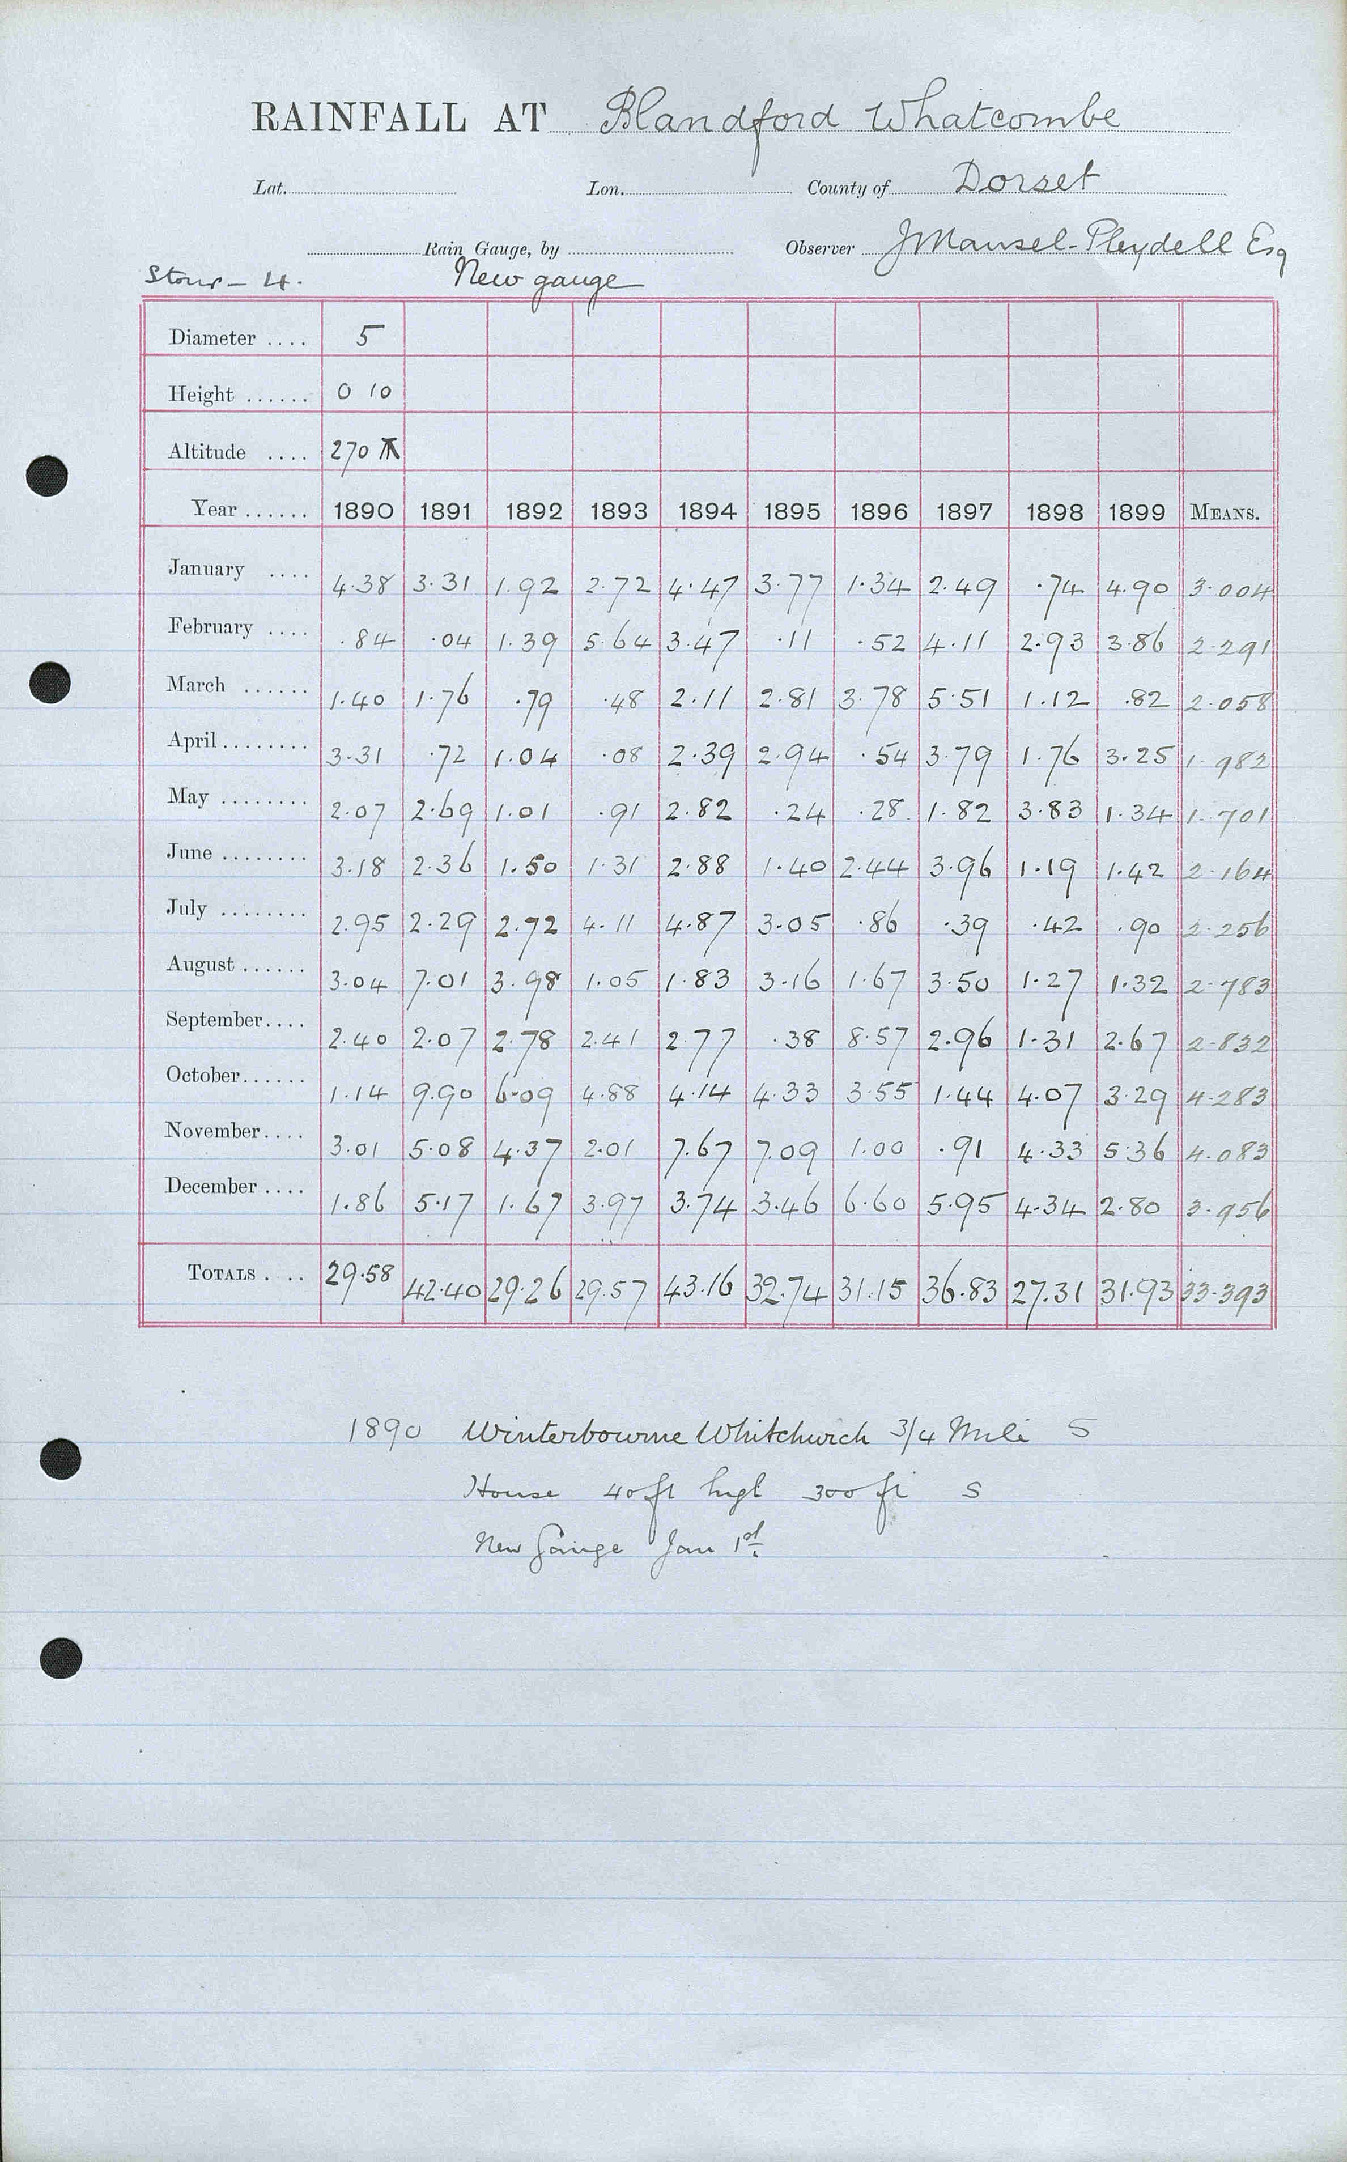 RAINFALL AT Blandford Whatcombe
Lat. Lon. County of Dorset
Rain Gauge, by Observer J Mansel-Pleydell Esq
Stour - 4. New gauge
Diameter .... 5
Height ...... 0 10
Altitude .... 270
Year ...... 1890 1891 1892 1893 1894 1895 1896 1897 1898 1899 MEANS.
January .... 4.38 3.31 1.92 2.72 4.47 3.77 1.34 2.49 .74 4.90 3.004
February .... .84 .04 1.39 5.64 3.47 .11 .52 4.11 2.93 3.86 2.291
March ...... 1.40 1.76 .79 .48 2.11 2.81 3.78 5.51 1.12 .82 2.058
April ........ 3.31 .72 1.04 .08 2.39 2.94 .54 3.79 1.76 3.25 1.982
May ........ 2.07 2.69 1.01 .91 2.82 .24 .28 1.82 3.83 1.34 1.701
June ........ 3.18 2.36 1.50 1.31 2.88 1.40 2.44 3.96 1.19 1.42 2.164
July ........ 2.95 2.29 2.72 4.11 4.87 3.05 .86 .39 .42 .90 2.256
August ...... 3.04 7.01 3.98 1.05 1.83 3.16 1.67 3.50 1.27 1.32 2.783
September.... 2.40 2.07 2.78 2.41 2.77 .38 8.57 2.96 1.31 2.67 2.832
October...... 1.14 9.90 6.09 4.88 4.14 4.33 3.55 1.44 4.07 3.29 4.283
November.... 3.01 5.08 4.37 2.01 7.67 7.09 1.00 .91 4.33 5.36 4.083
December .... 1.86 5.17 1.67 3.97 3.74 3.46 6.60 5.95 4.34 2.80 3.956
TOTALS . .. 29.58 42.40 29.26 29.57 43.16 32.74 31.15 36.83 27.31 31.93 33.393
1890 Winterbourne Whitchurch 3/4 Mile S
House 40 ft high 300 ft S
New Gauge Jan 1st